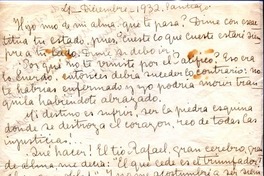 4 Diciembre - 1932. Santiago
Hijo mio de mi alma que te pasa? Dime con exac
titud tu estado, pues cueste lo que cueste estaré siem
pre a tu lado. Dime si debo ir y
¿Por qué no te viniste por el Eso era
lo entonces debía suceder lo contrario: no
te habrías enfermado y yo podría morir tran
quila habiéndote abrazado.
Mi destino es sufrir, ser la piedra esquina
donde se destroza el corazón, reo de todas las
injusticias...
¡Qué hacer! El tío Rafael, gran cerebro, gran
de alma, me decía: "El que cede es el triunfador!
me acostumbré a ser siem